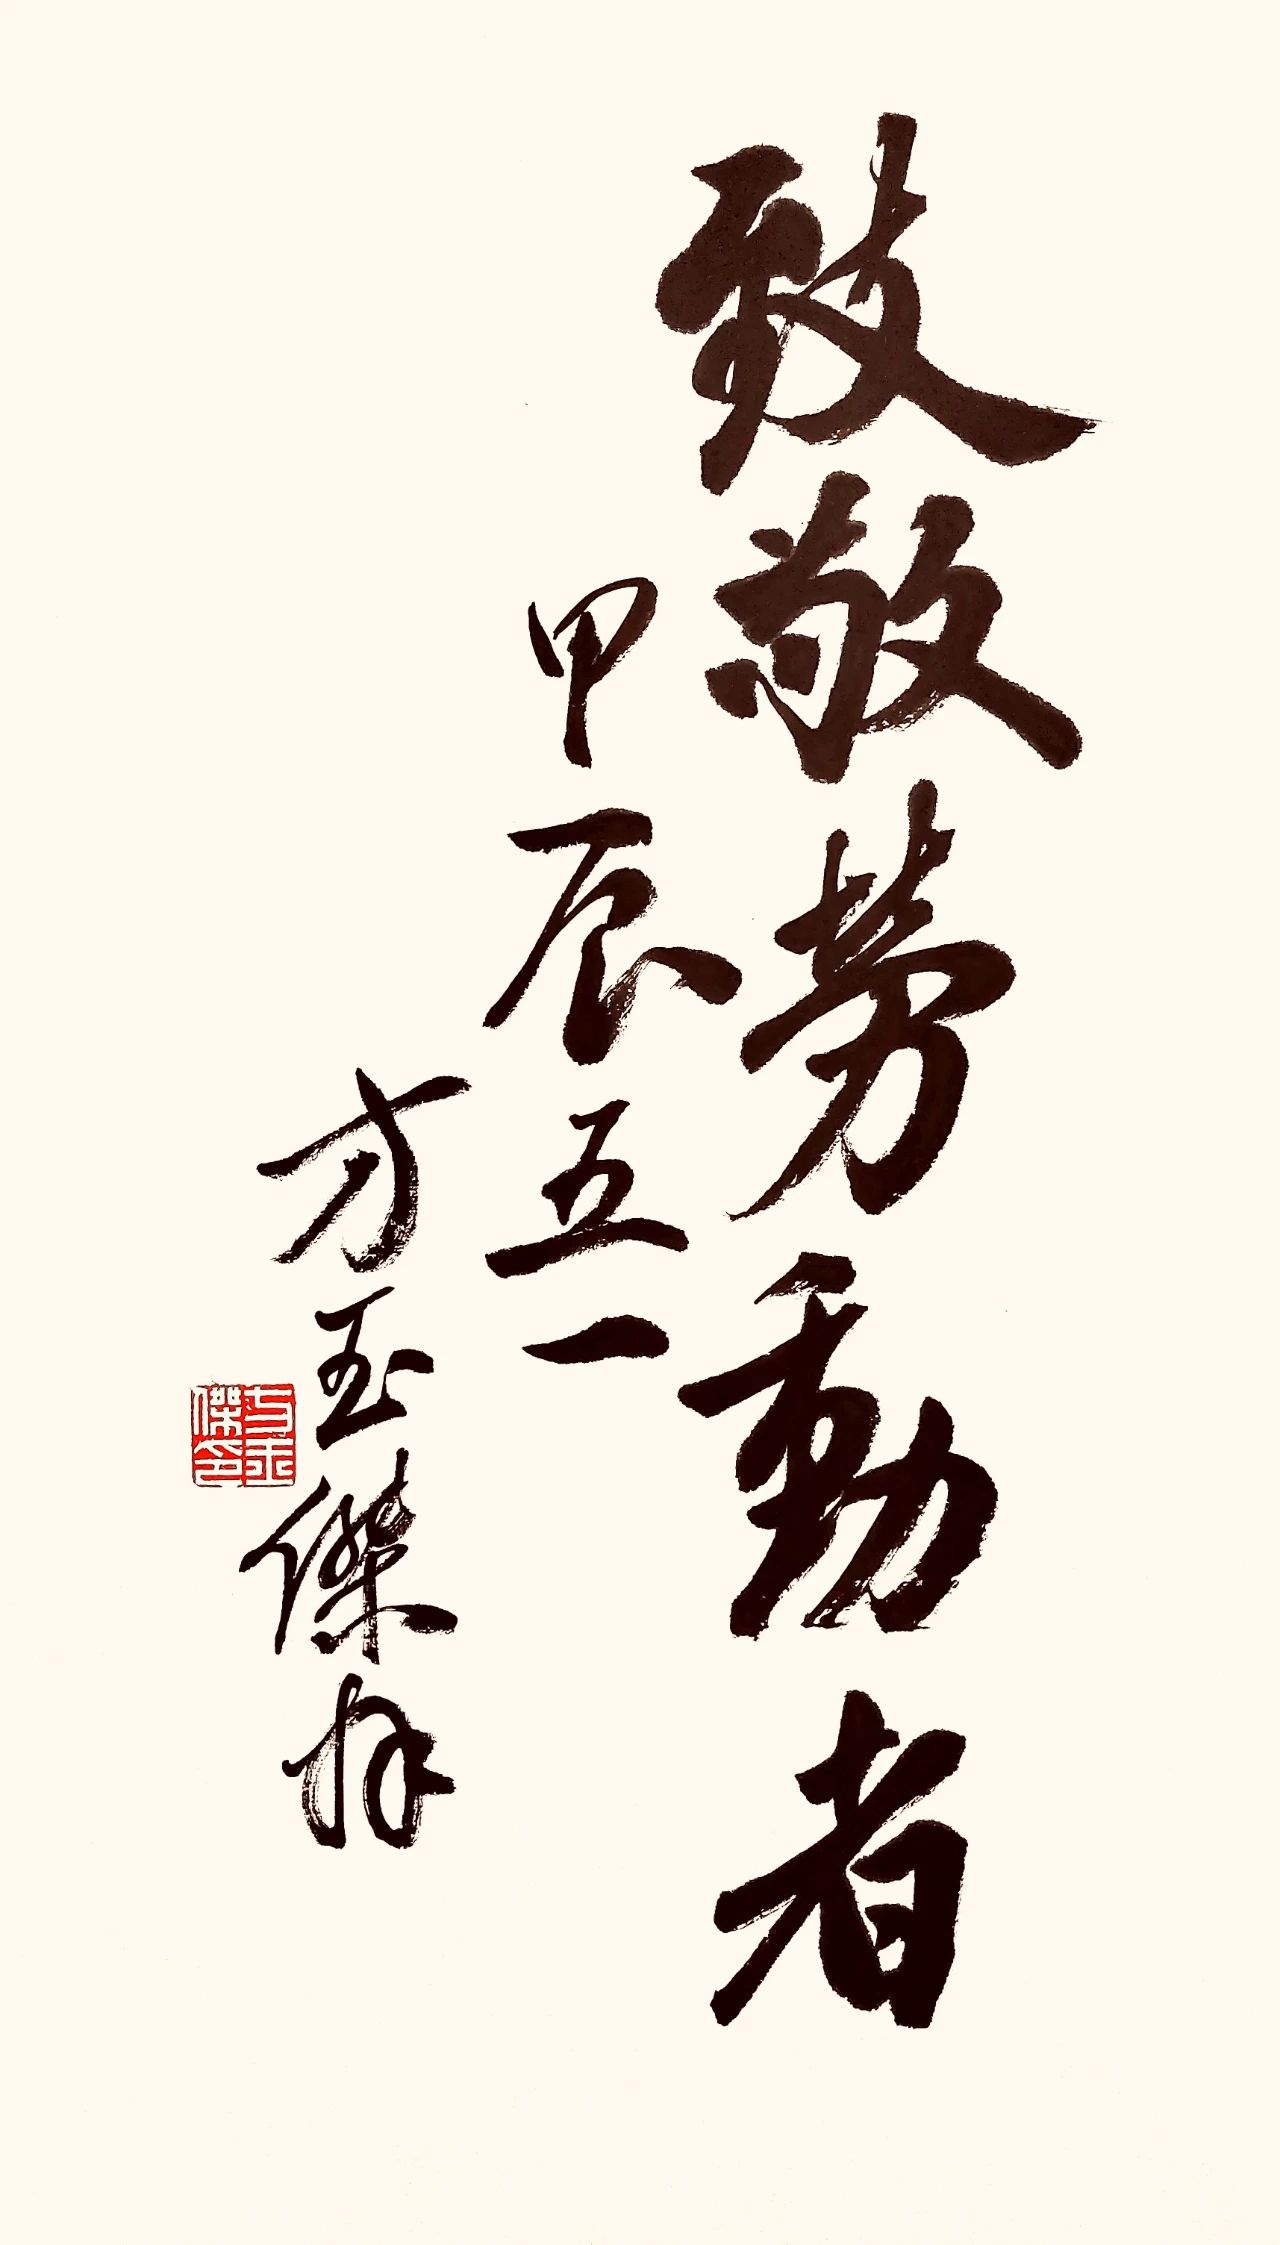 致敬勞動者
甲辰五一
方玉傑拜
方玉傑印